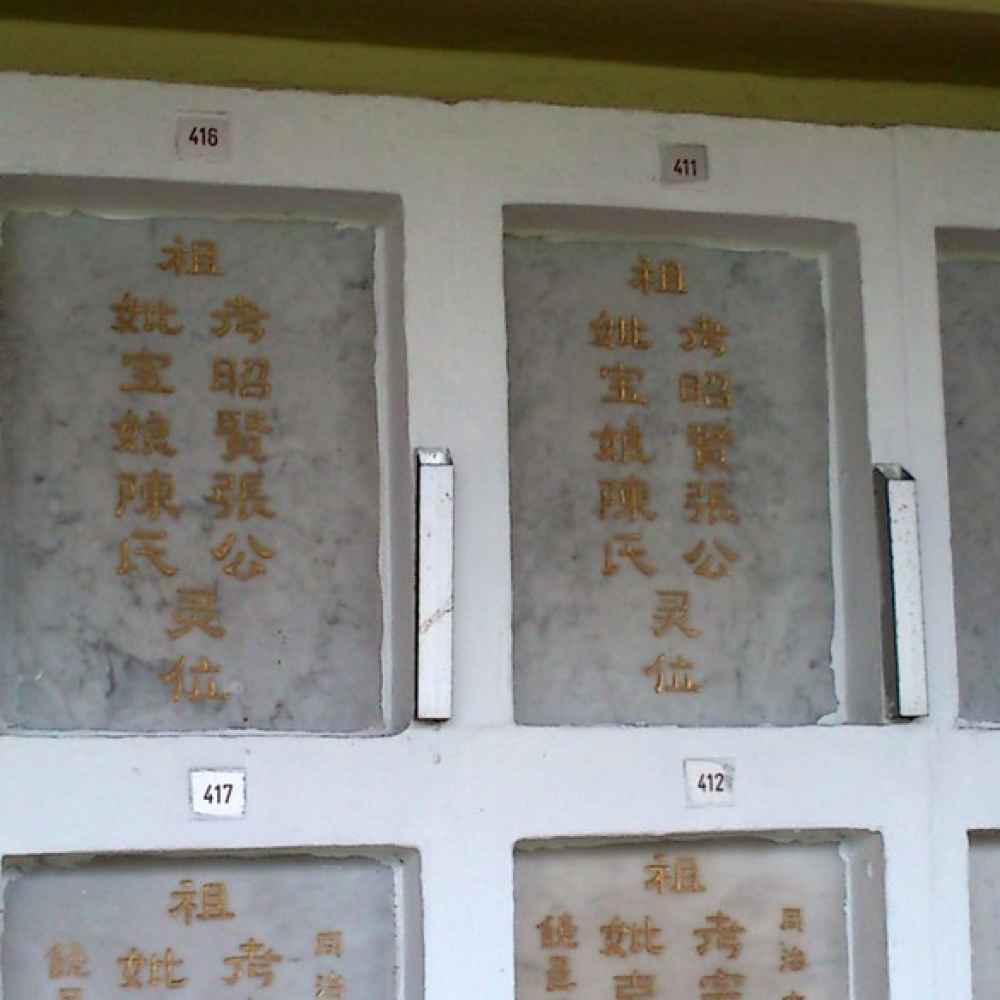 416
祖
考昭賢張公
妣宝娘陳氏
灵位
411
祖
考昭賢張公
妣宝娘陳氏
灵位
417
祖
考
妣
饒邑
412
祖
同治
考
妣
饒邑